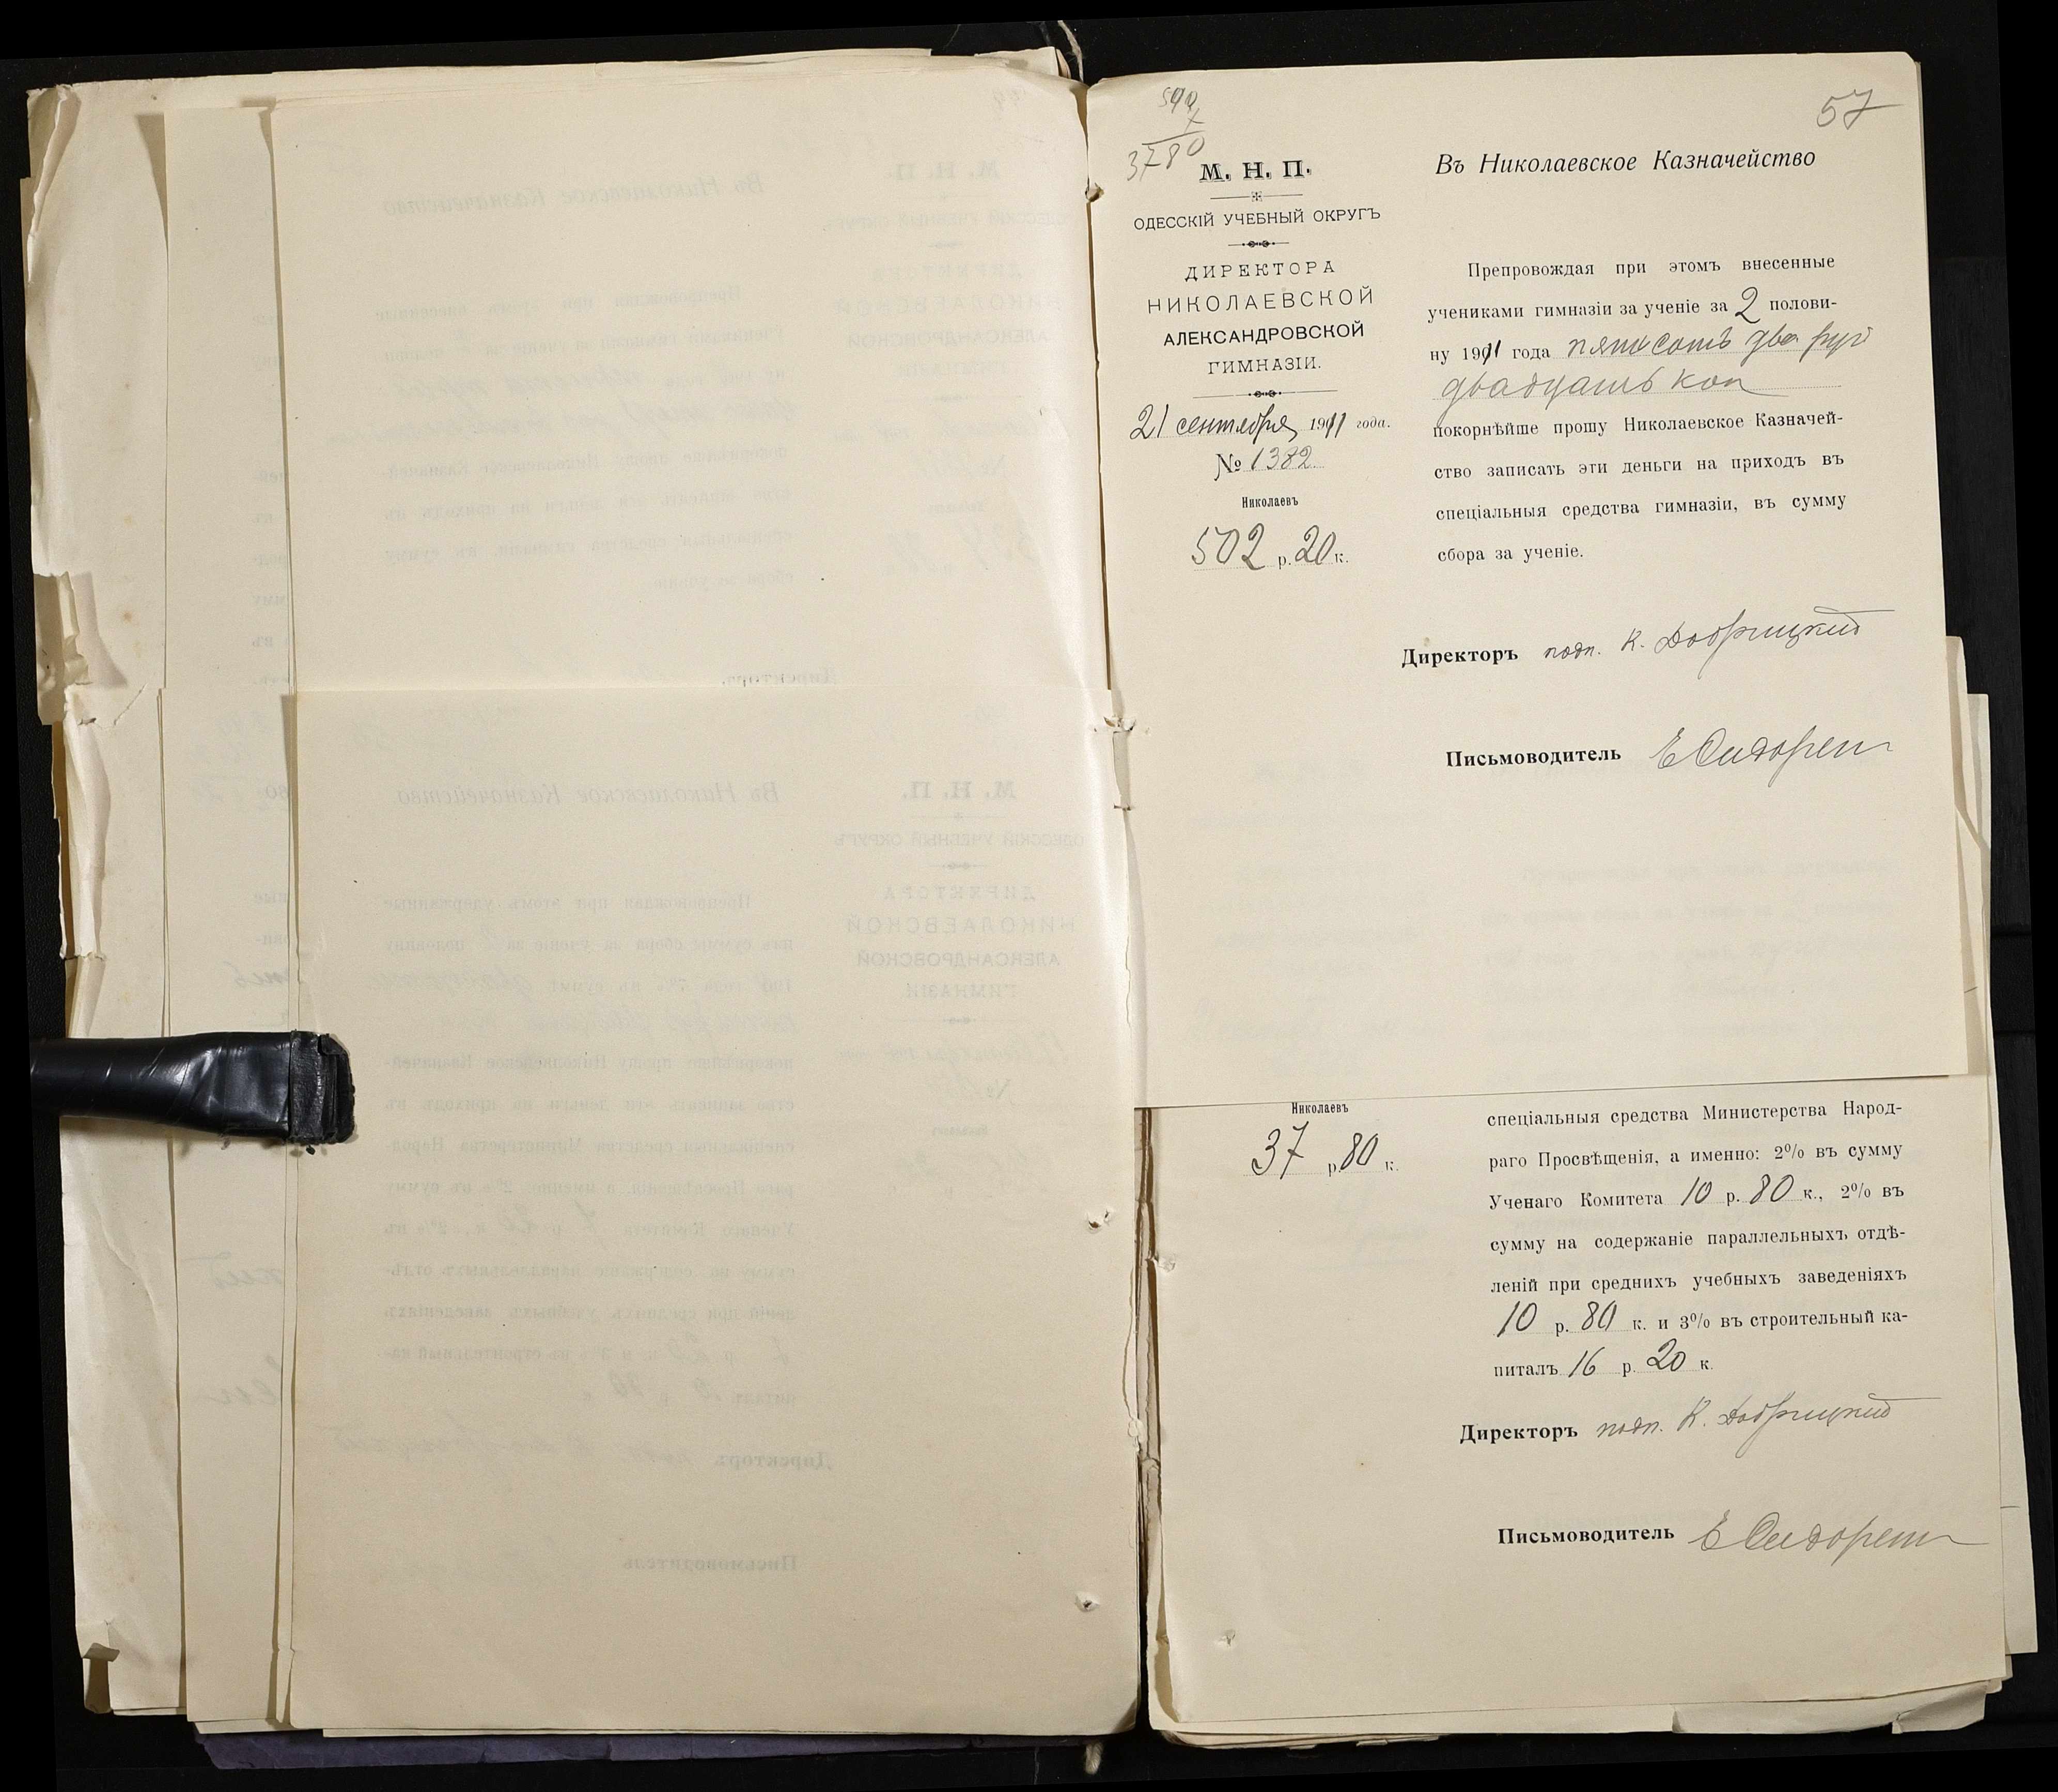 57
540
7
3780
М. Н. П.
ОДЕССКІЙ УЧЕБНЫЙ ОКРУГЪ
ДИРЕКТОРА
НИКОЛАЕВСКОЙ
АЛЕКСАНДРОВСКОЙ
ГИМНАЗІИ.
21 сентября 1911 года.
№ 1382.
Николаевъ
502 р. 20 к.
Въ Николаевское Казначейство
Препровождая при этомъ внесенные
учениками гимназіи за ученіе за 2 полови-
ну 1911 года пятьсотъ два руб
двадцать коп
покорнѣйше прошу Николаевское Казначей-
ство записать эти деньги на приходъ въ
спеціальныя средства гимназіи, въ сумму
сбора за ученіе.
Директоръ подп. К. Добрицкій
Письмоводитель Е Сидорен
Николаевъ
37 р. 80 к.
спеціальныя средства Министерства Народ-
раго Просвѣщенія, а именно: 2% въ сумму
Ученаго Комитета 10 р. 80 к., 2% въ
сумму на содержаніе параллельныхъ отдѣ-
леній при среднихъ учебныхъ заведеніяхъ
10 р. 80 к. и 3% въ строительный ка-
питалъ 16 р. 20 к.
Директоръ подп. К. Добрицкій
Письмоводитель Е Сидорен